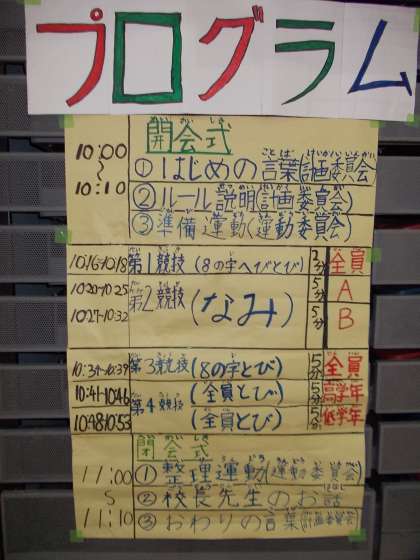 プログラム
10:00 〜 10:10 開会式
①はじめの言葉(計画委員会)
②ルール説明(計画委員会)
③準備運動(運動委員会)
10:16-10:18 第1競技(8の字へびとび) 2分 全員
10:20-10:25 第2競技(なみ) 5分 A
10:27-10:32 5分 B
10:34-10:39 第3競技(8の字とび) 5分 全員
10:41-10:46 第4競技(全員とび) 5分 高学年
10:48-10:53 (全員とび) 5分 低学年
11:00 〜 11:10 閉会式
①整理運動(運動委員会)
②校長先生のお話
③おわりの言葉(計画委員会)